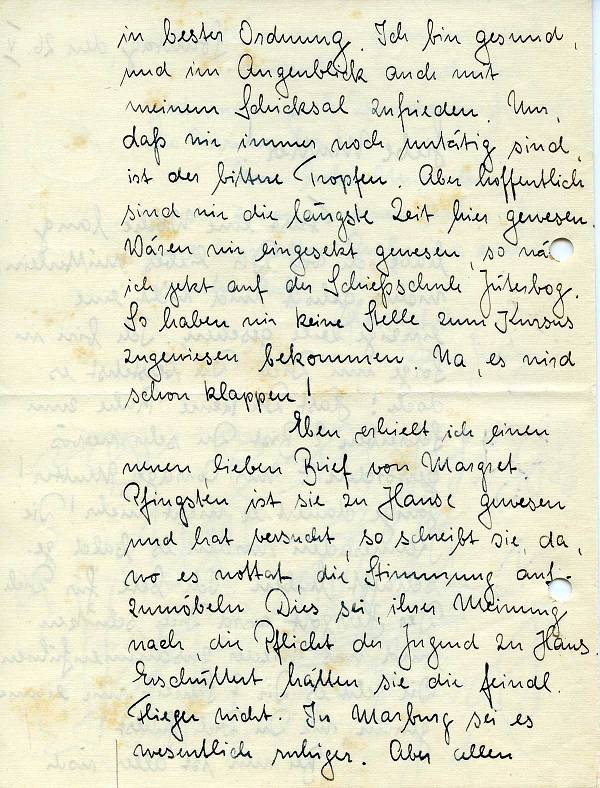 in bester Ordnung. Ich bin gesund,
und im Augenblick auch mit
meinem Schicksal zufrieden. Nur,
daß wir immer noch untätig sind,
ist der bittere Tropfen. Aber hoffentlich
sind wir die längste Zeit hier gewesen.
Wären wir eingesetzt gewesen, so wä
ich jetzt auf der Schießschule Jüterbog.
So haben wir keine Stelle zum Kursus
zugewiesen bekommen. Na, es wird
schon klappen!
Eben erhielt ich einen
neuen, lieben Brief von Margret.
Pfingsten ist sie zu Hause gewesen
und hat versucht, so schreibt sie, da,
wo es nottat, die Stimmung auf-
zumöbeln. Dies sei, ihrer Meinung
nach, die Pflicht der Jugend zu Haus.
Erschüttert hätten sie die feindl.
Flieger nicht. In Marburg sei es
wesentlich ruhiger. Aber allen